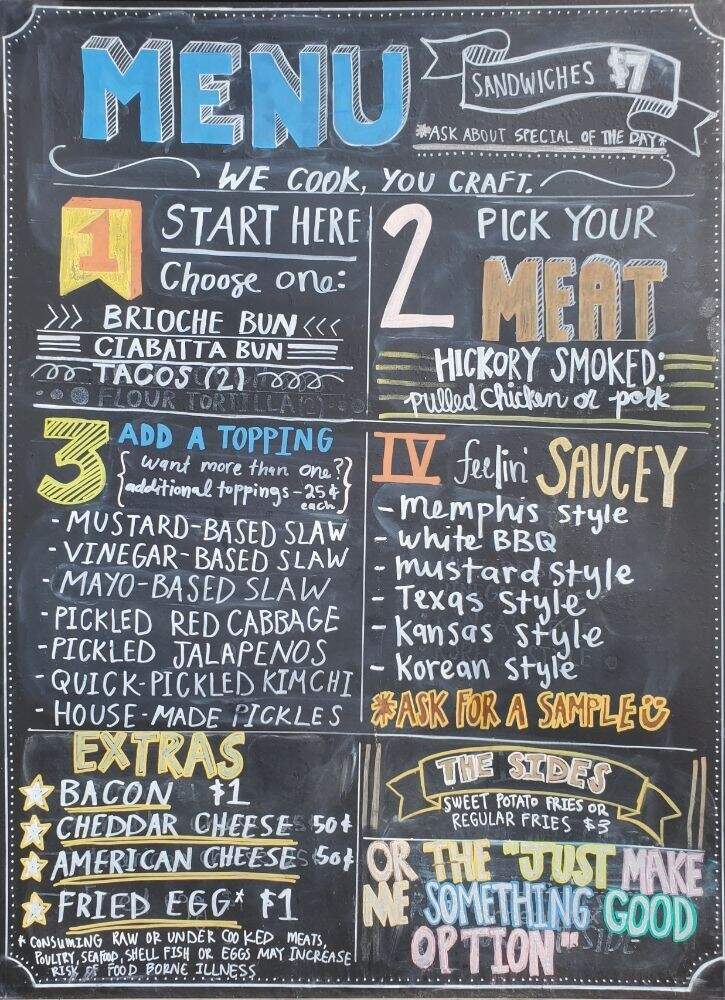 MENU
SANDWICHES $7
*ASK ABOUT SPECIAL OF THE DAY*
WE COOK, YOU CRAFT.
1 START HERE
Choose one:
>>> BRIOCHE BUN <<<
CIABATTA BUN
TACOS (2)
FLOUR TORTILLA
2 PICK YOUR
MEAT
HICKORY SMOKED:
pulled chicken or pork
3 ADD A TOPPING
{ want more than one? }
additional toppings - 25¢
each
- MUSTARD-BASED SLAW
- VINEGAR-BASED SLAW
- MAYO-BASED SLAW
- PICKLED RED CABBAGE
- PICKLED JALAPENOS
- QUICK-PICKLED KIMCHI
- HOUSE-MADE PICKLES
IV feelin' SAUCEY
- Memphis style
- white BBQ
- mustard style
- Texas style
- Kansas style
- Korean style
*ASK FOR A SAMPLE
EXTRAS
BACON $1
CHEDDAR CHEESE 50¢
AMERICAN CHEESE 50¢
FRIED EGG* $1
* CONSUMING RAW OR UNDER COOKED MEATS,
POULTRY, SEAFOOD, SHELL FISH OR EGGS MAY INCREASE
RISK OF FOOD BORNE ILLNESS
THE SIDES
SWEET POTATO FRIES OR
REGULAR FRIES $3
OR THE "JUST MAKE
ME SOMETHING GOOD
OPTION"